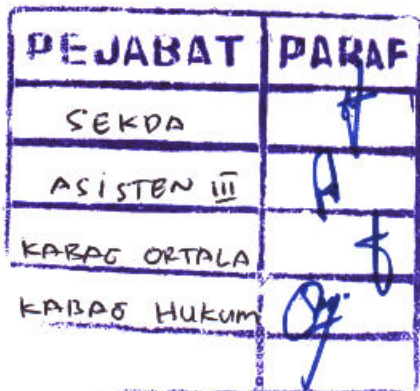 PEJABAT PARAF
SEKDA
ASISTEN III
KABAG ORTALA
KABAG HUKUM